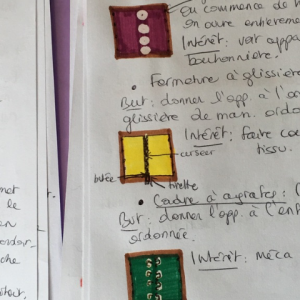 ou commence de
en ouvre entièreme
Intérêt : voir appa
boutonnière.
• Fermeture à glissiè
But : donner l'opp. à l'
glissière de man. ordo
Intérêt : faire co
tissu.
curseur
butée
tirette
• Cadre à agrafes :
But : donner l'opp. à l'enf
ordonnée.
Intérêt : méca
met
le
en
che